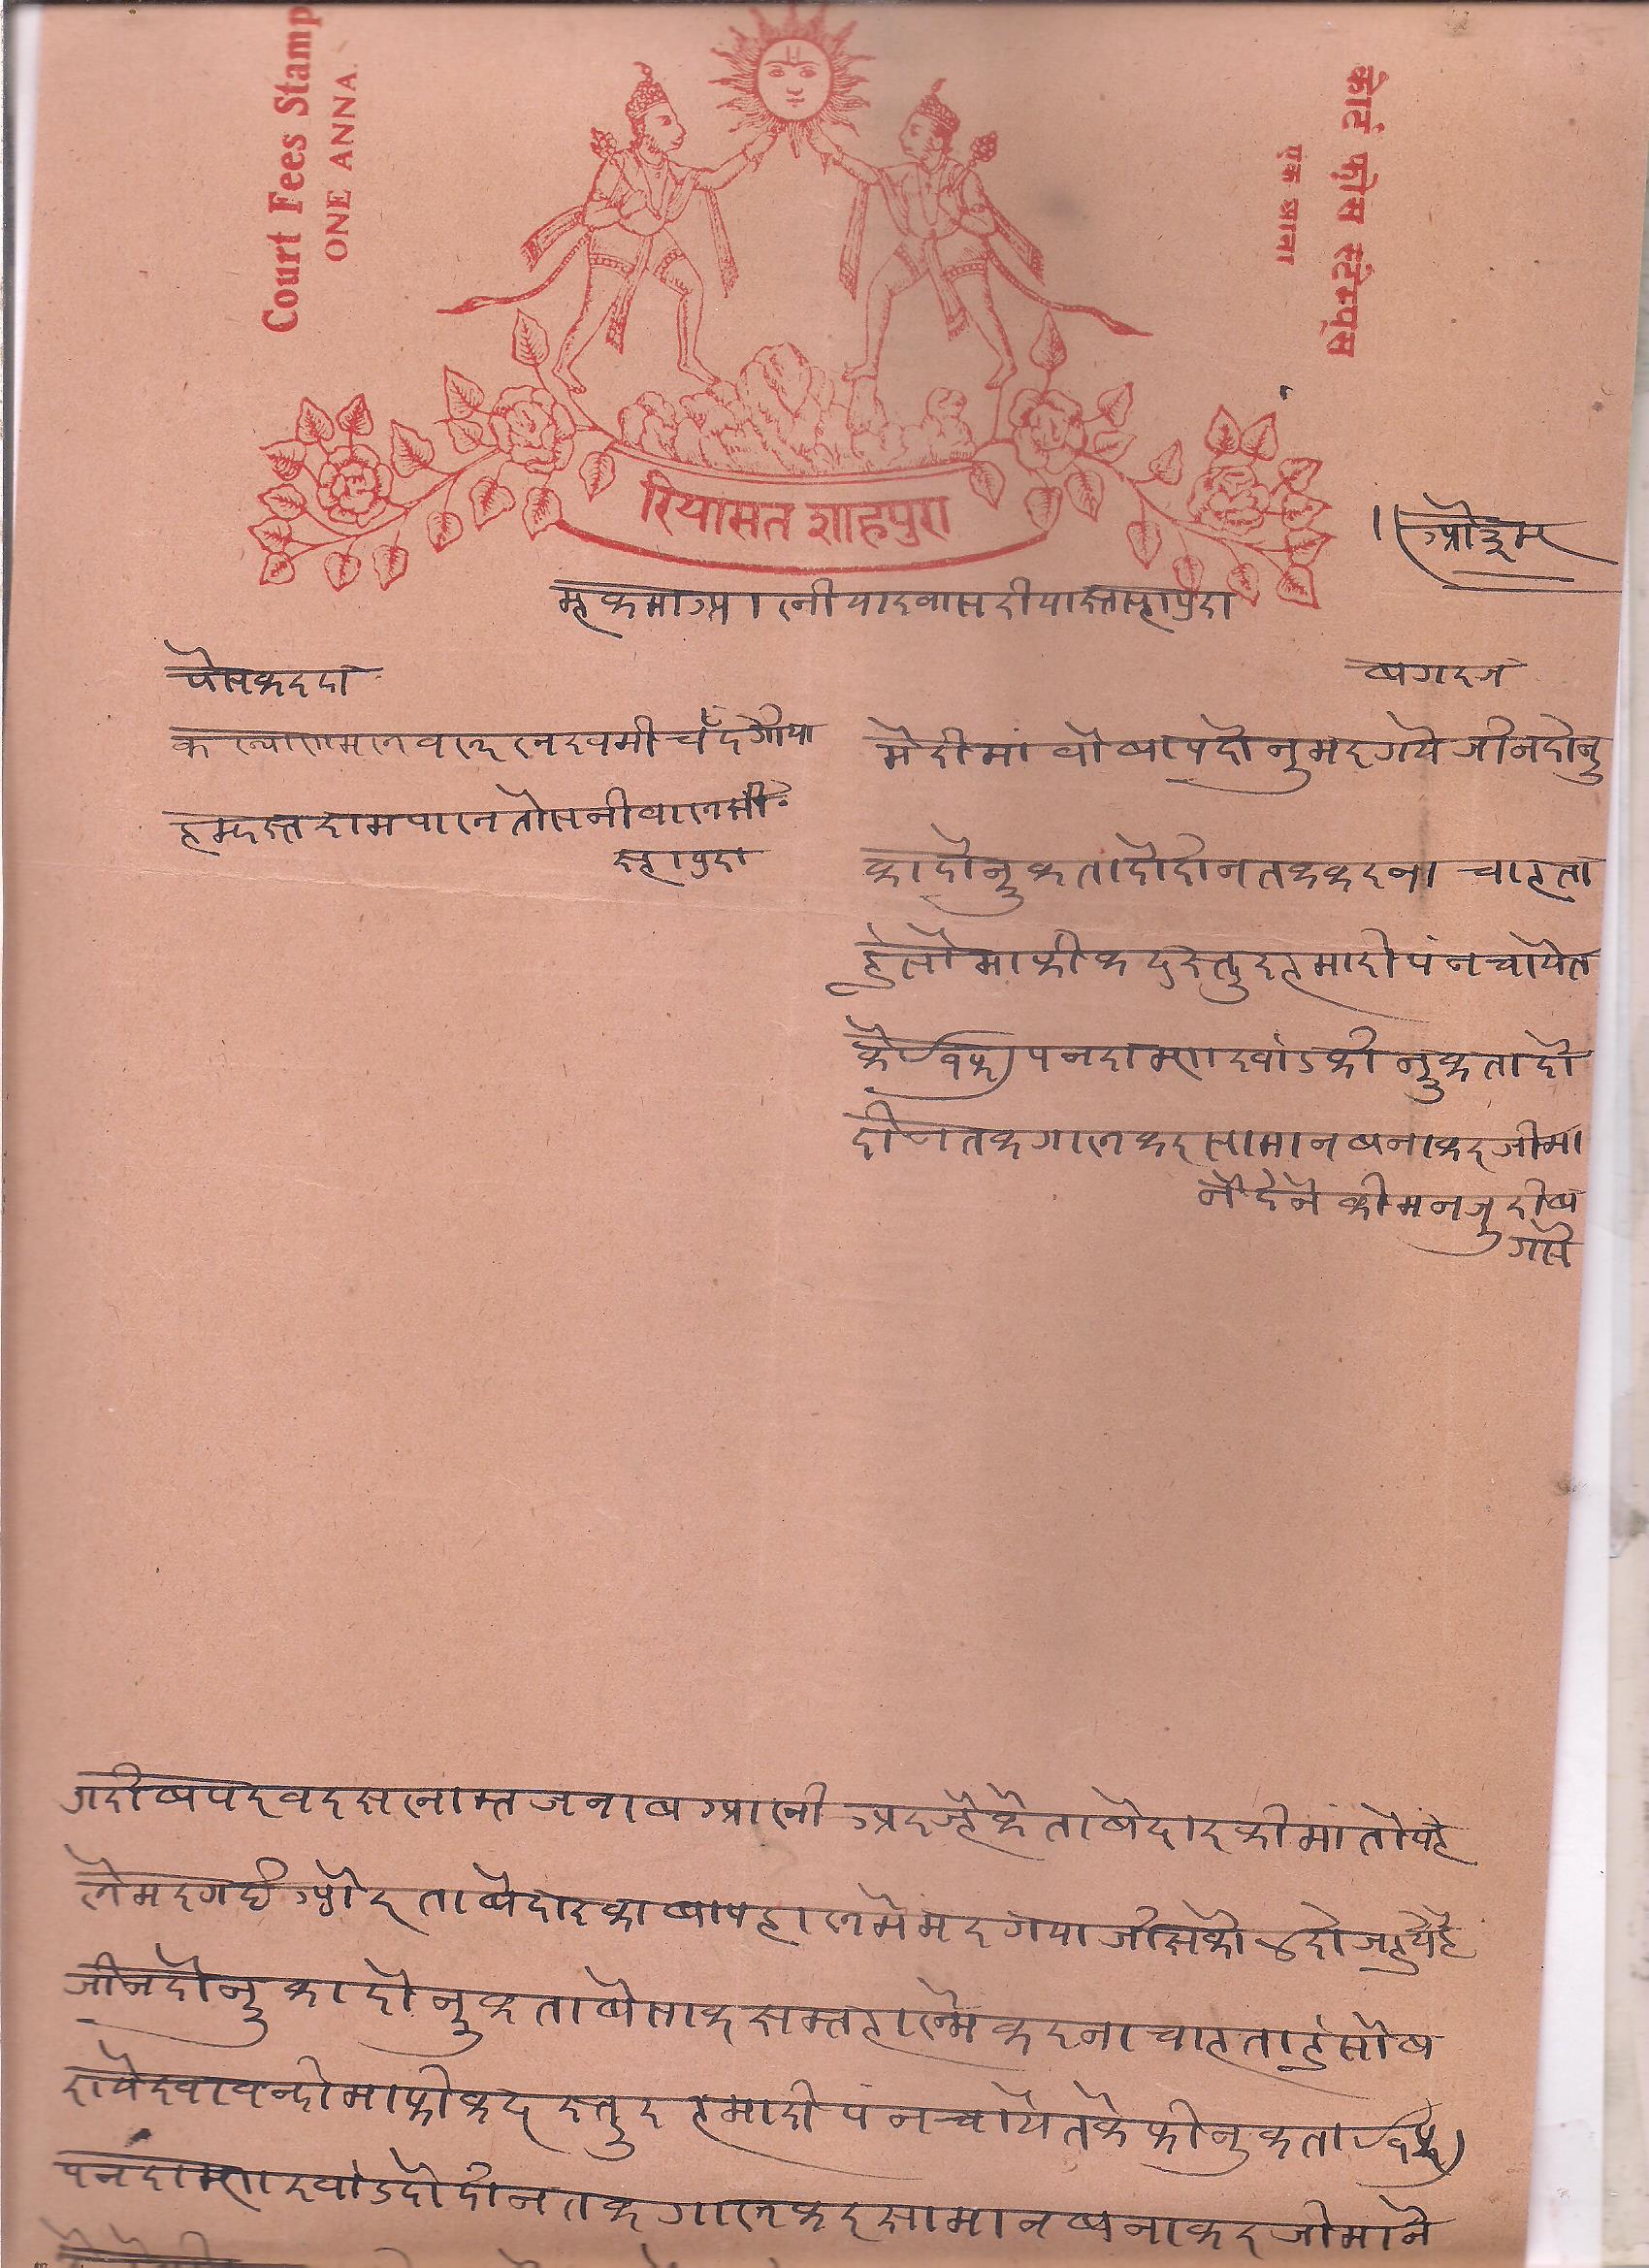 Court Fees Stamp
ONE ANNA.
कोर्ट फ़ीस स्टेम्प्स
एक आना
रियासत शाहपुरा
ओ३म
मेहकमा आलीया खास रीयास्त साहापुरा
पेसकरदा
बगरज
कल्याणमल वल्द लखमीचँद
हमदस्त रामपाल तोसनीवाल
साहापुरा
मेरी मां वो बाप दोनु मर गये जीन दोनु
का दो नुकता दो दीन तक करना चाहता
हुं सो माफीक दस्तुर हमारी पंनचायेत
के १५) पनरा मण खांड की नुकता दो
दीन तक गाल कर सामान बनाकर जीमा
ने देने की मनजुरी ब
गरीब परवर सलामत जनाब आली अरज हे के ताबेदार की मां तो पेह
ले मर गई ओर ताबेदार का बाप हाल मे मर गया जीसको ८ रोज हुये हे
जीन दोनु का दो नुकता करना चाहता हुं सो ब
राये खावन्दी माफीक दस्तुर हमारी पंनचायेत के फी नुकता १५)
पनरा मण खांड दो दीन तक गाल कर सामान बनाकर जीमाने